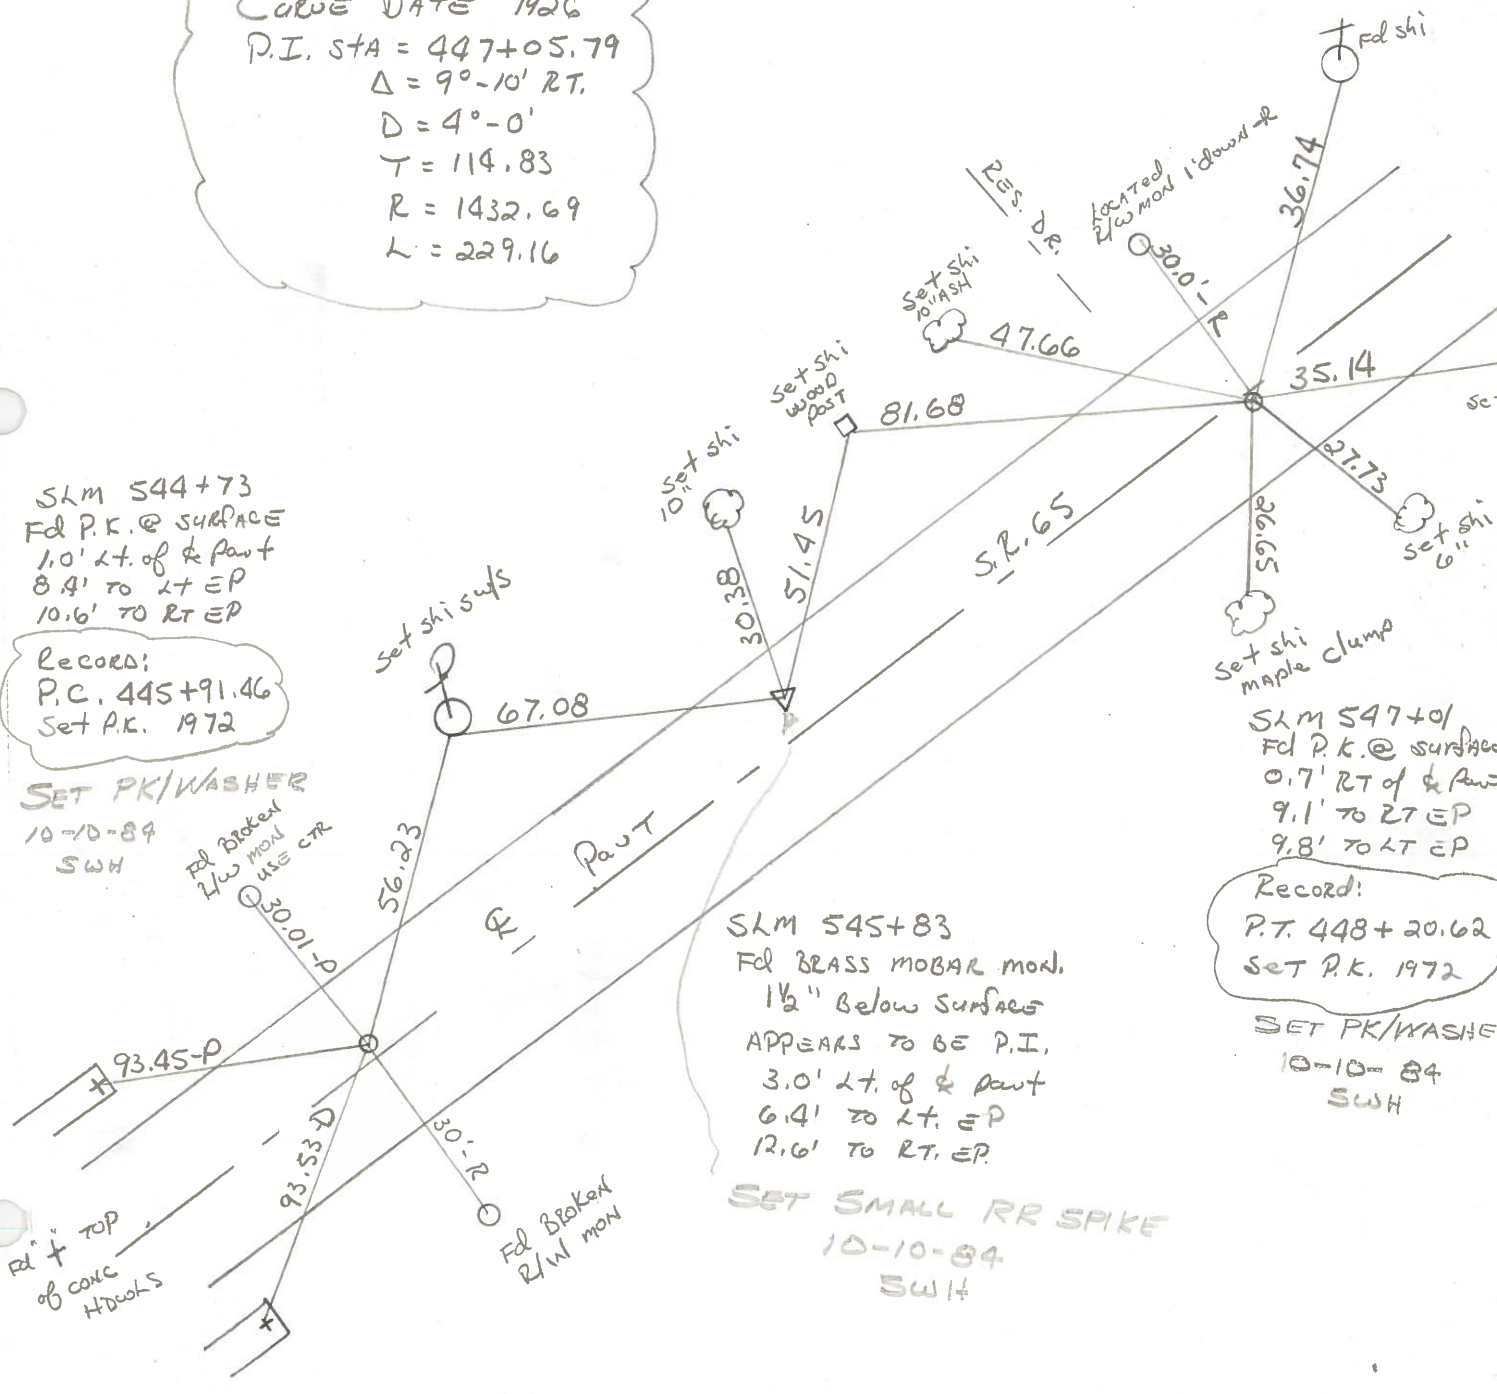 CURVE DATE 1926
P.I. StA = 447+05.79
Δ = 9°-10' RT.
D = 4°-0'
T = 114.83
R = 1432.69
L = 229.16
Fd shi
36.74
RES. DR.
LOCATED
R/W MON 1' down-R
30.0'-R
Set shi
10" ASH
47.66
35.14
Set shi
WOOD
POST
81.68
27.73
Set shi
6"
26.65
Set shi
maple clump
Set shi
10"
30.38
51.45
S.R. 65
SLM 544+73
Fd P.K. @ SURFACE
1.0' Lt. of ℄ Pavt
8.4' TO Lt EP
10.6' TO RT EP
RECORD:
P.C. 445+91.46
Set P.K. 1972
SET PK/WASHER
10-10-84
SWH
Set shi sw/s
67.08
56.23
Fd BROKEN
R/W MON
USE CTR
30.01-D
℄ PavT
93.45-D
93.53-D
30'-R
Fd BROKEN
R/W MON
Fd "+" TOP
of conc
HDWLS
SLM 545+83
Fd BRASS MOBAR MON.
1½" Below SURFACE
APPEARS TO BE P.I.
3.0' Lt. of ℄ pavt
6.4' TO Lt. EP
12.6' TO RT. EP.
SET SMALL RR SPIKE
10-10-84
SWH
SLM 547+01
Fd P.K. @ surface
0.7' RT of ℄ Pavt
9.1' TO RT EP
9.8' TO LT EP
Record:
P.T. 448+20.62
SET P.K. 1972
SET PK/WASHE
10-10-84
SWH